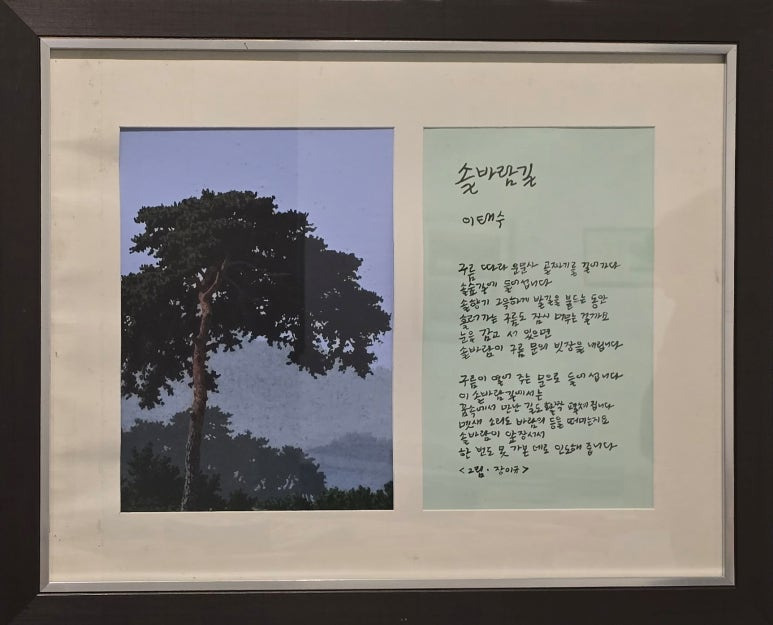 솔바람길
이태수
구름 따라 운문사 골짜기를 걸어가다
솔숲길에 들어섭니다
솔향기 그윽하게 발길을 붙드는 동안
흘러가는 구름도 잠시 머무는 걸까요
눈을 감고 서 있으면
솔바람이 구름 문의 빗장을 내립니다
구름이 열어 주는 문으로 들어섭니다
이 솔바람길에서는
꿈속에서 만난 길도 활짝 펼쳐집니다
멧새 소리도 바람의 등을 떠미는지요
솔바람이 앞장서서
한 번도 못 가본 데로 인도해 줍니다
<그림·장이규>